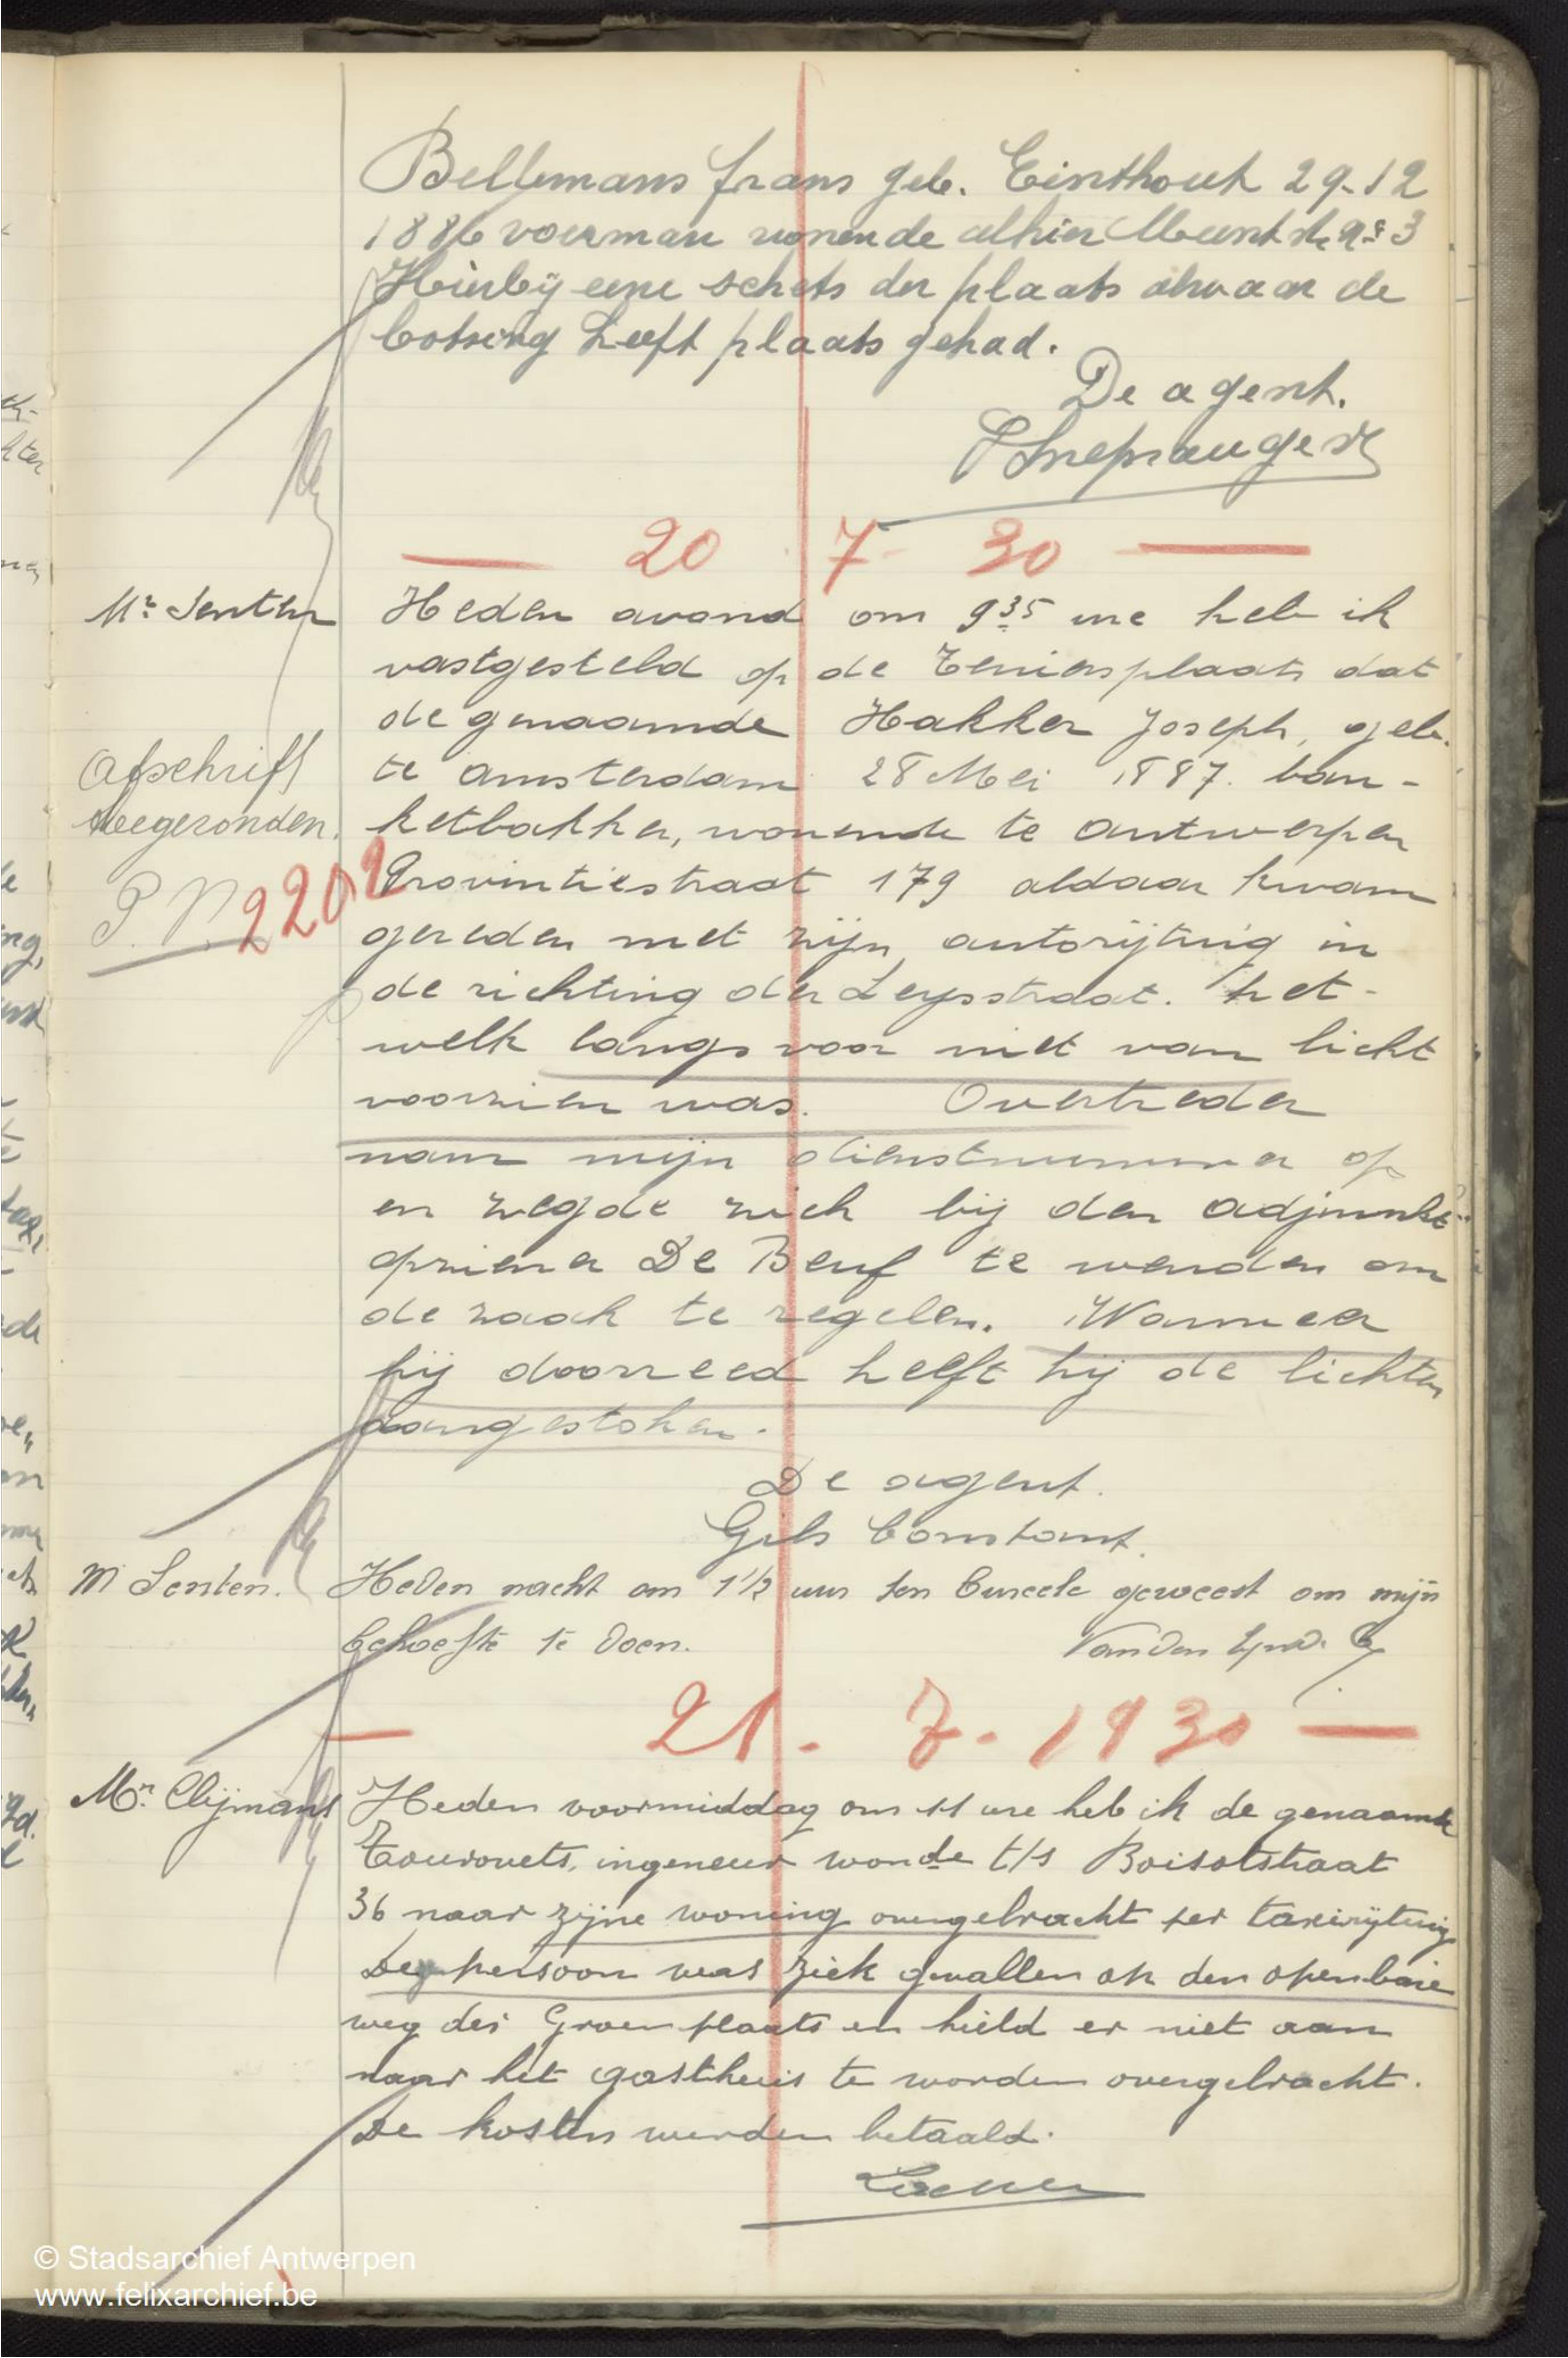 Bellemans frans geb. Einthout 29-12
1886 voerman wonende alhier Munt str nr 3
Hierbij eene schets der plaats alwaar de
botsing heeft plaats gehad.
De agent.
20 7- 30
Mr Senten
Heden avond om 9 35 ure heb ik
vastgesteld op de Teniersplaats dat
de genaamde Hakker Joseph, geb.
Afschrift
te Amsterdam 28 Mei 1887. ban-
meegezonden.
ketbakker, wonende te Antwerpen
P.V. 2202
Provintiestraat 179 aldaar kwam
gereden met zijn autorijtuig in
de richting der Leysstraat. het-
welk langs voor niet van licht
voorzien was. Overtreder
nam mijn dienstnummer op
en zegde zich bij den adjunkt-
opziener De Beuf te wenden om
de zaak te regelen. Wanneer
hij doorreed heeft hij de lichten
aangestoken.
De agent.
Gils Constant.
M Senten.
Heden nacht om 1 1/2 uur ten bureele geweest om mijn
behoefte te doen.
Van den
21. 7. 1930
Mr. Clijmans
Heden voormiddag om 11 ure heb ik de genaamde
Tourovets, ingeneur wonde t/s Boisotstraat
36 naar zijne woning overgebracht per taxirijtuig
Dez persoon was ziek gevallen op den openbare
weg der Groenplaats en hield er niet aan
naar het gasthuis te worden overgebracht.
De kosten werden betaald.
© Stadsarchief Antwerpen
www.felixarchief.be